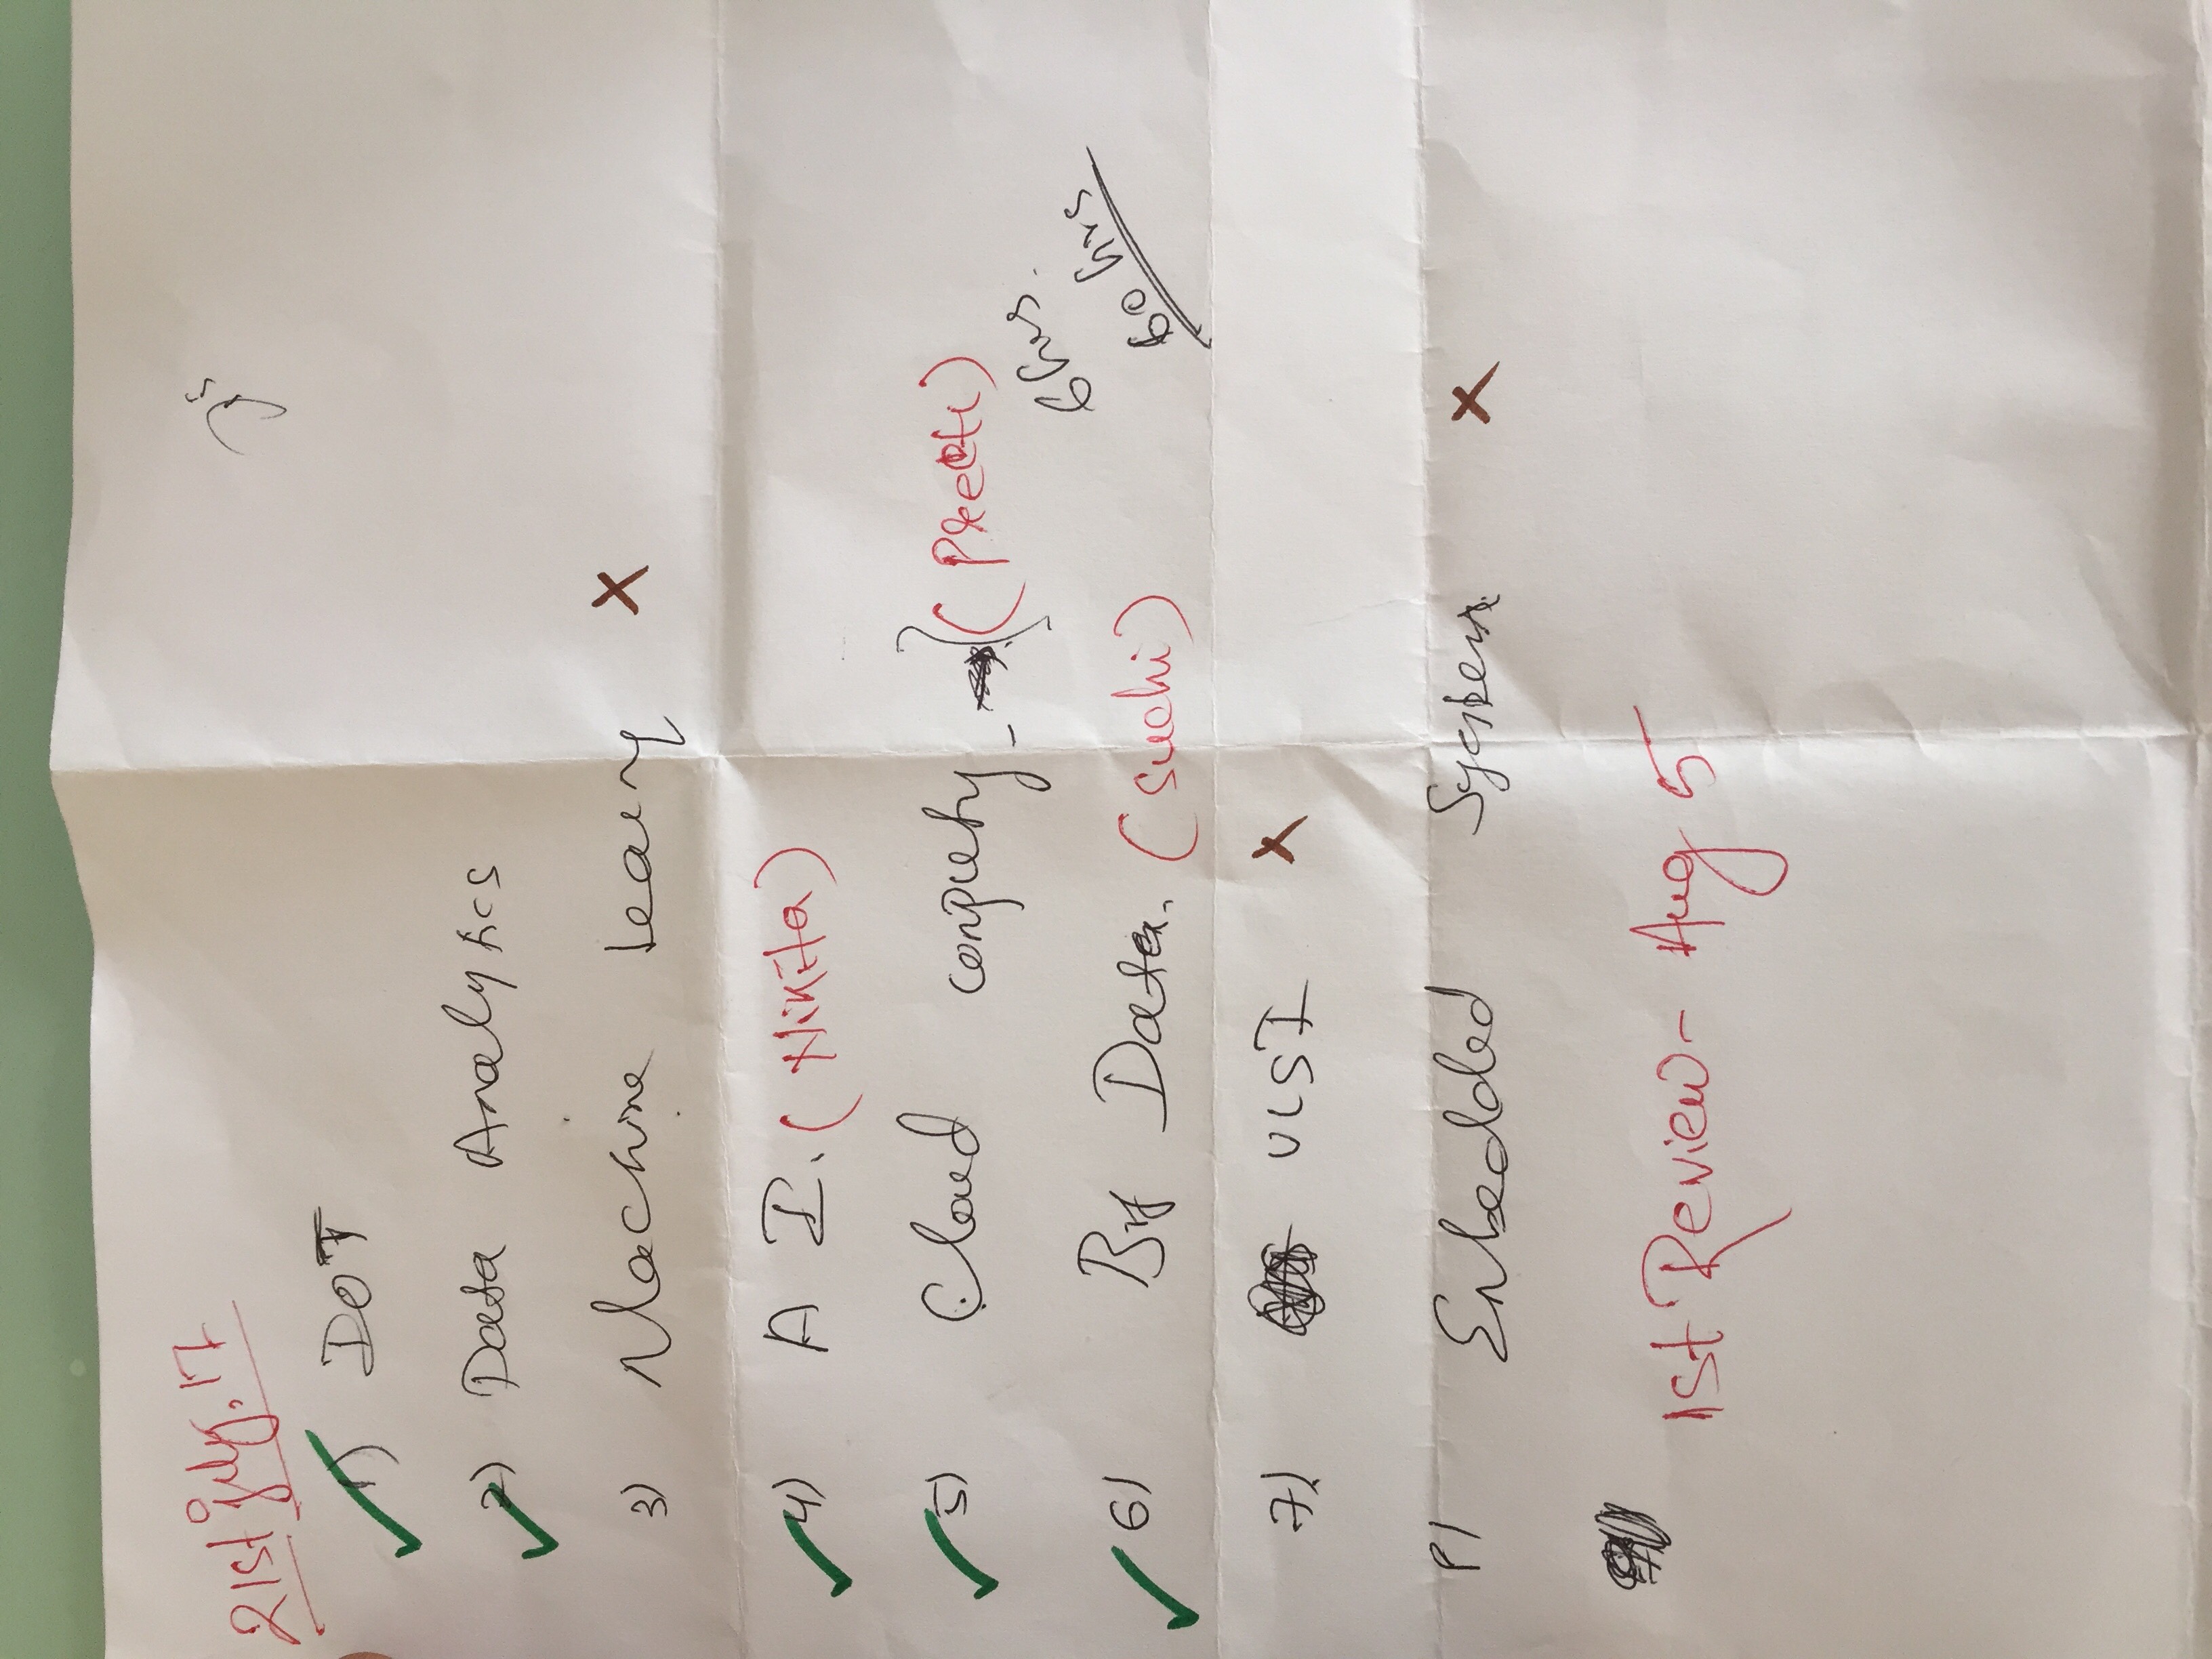 21st july, 17
1) DOT
2) Data Analytics
3) Machine Learng X
4) A I. (Nikita)
5) Cloud computy - (Preeti)
6 hrs.
60 hrs
6) Big Data. (Suchi)
7) VLSI X
8) Embedded System X
1st Review - Aug 5